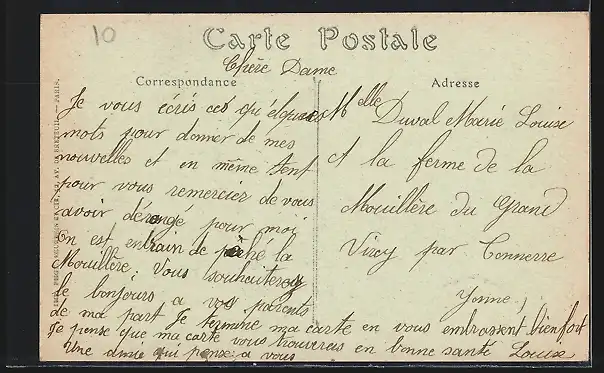 10
Carte Postale
Chère Dame
Correspondance
Je vous écris ces qu'élques
mots pour donner de mes
nouvelles et en même tent
pour vous remercier de vous
avoir dérange pour moi
On est entrain de pèché la
Mouillère. Vous souhaiterez
le bonjours a vos parents
de ma part Je termine ma carte en vous embrassent bien fort
Je pense que ma carte vous trouverais en bonne santé Louise
Une amie qui pense a vous
Adresse
Melle Duval Marie Louise
A la ferme de la
Mouillère du Grand
Viroy par Tonnerre
Yonne,